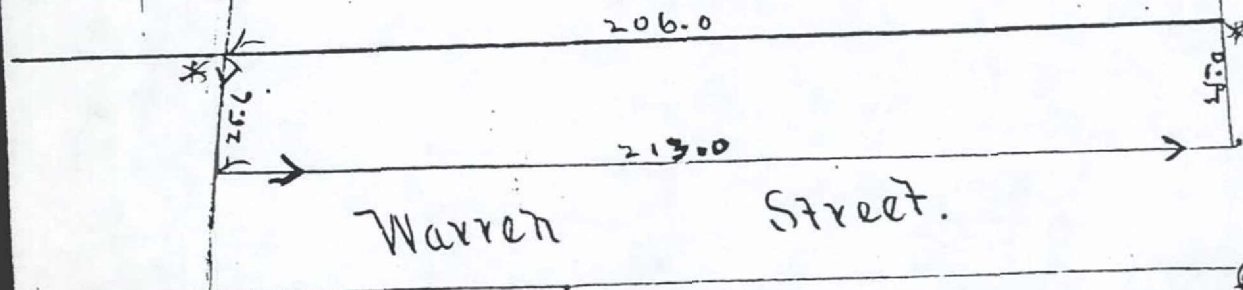 206.0
25.6
25.0
213.0
Warren Street.